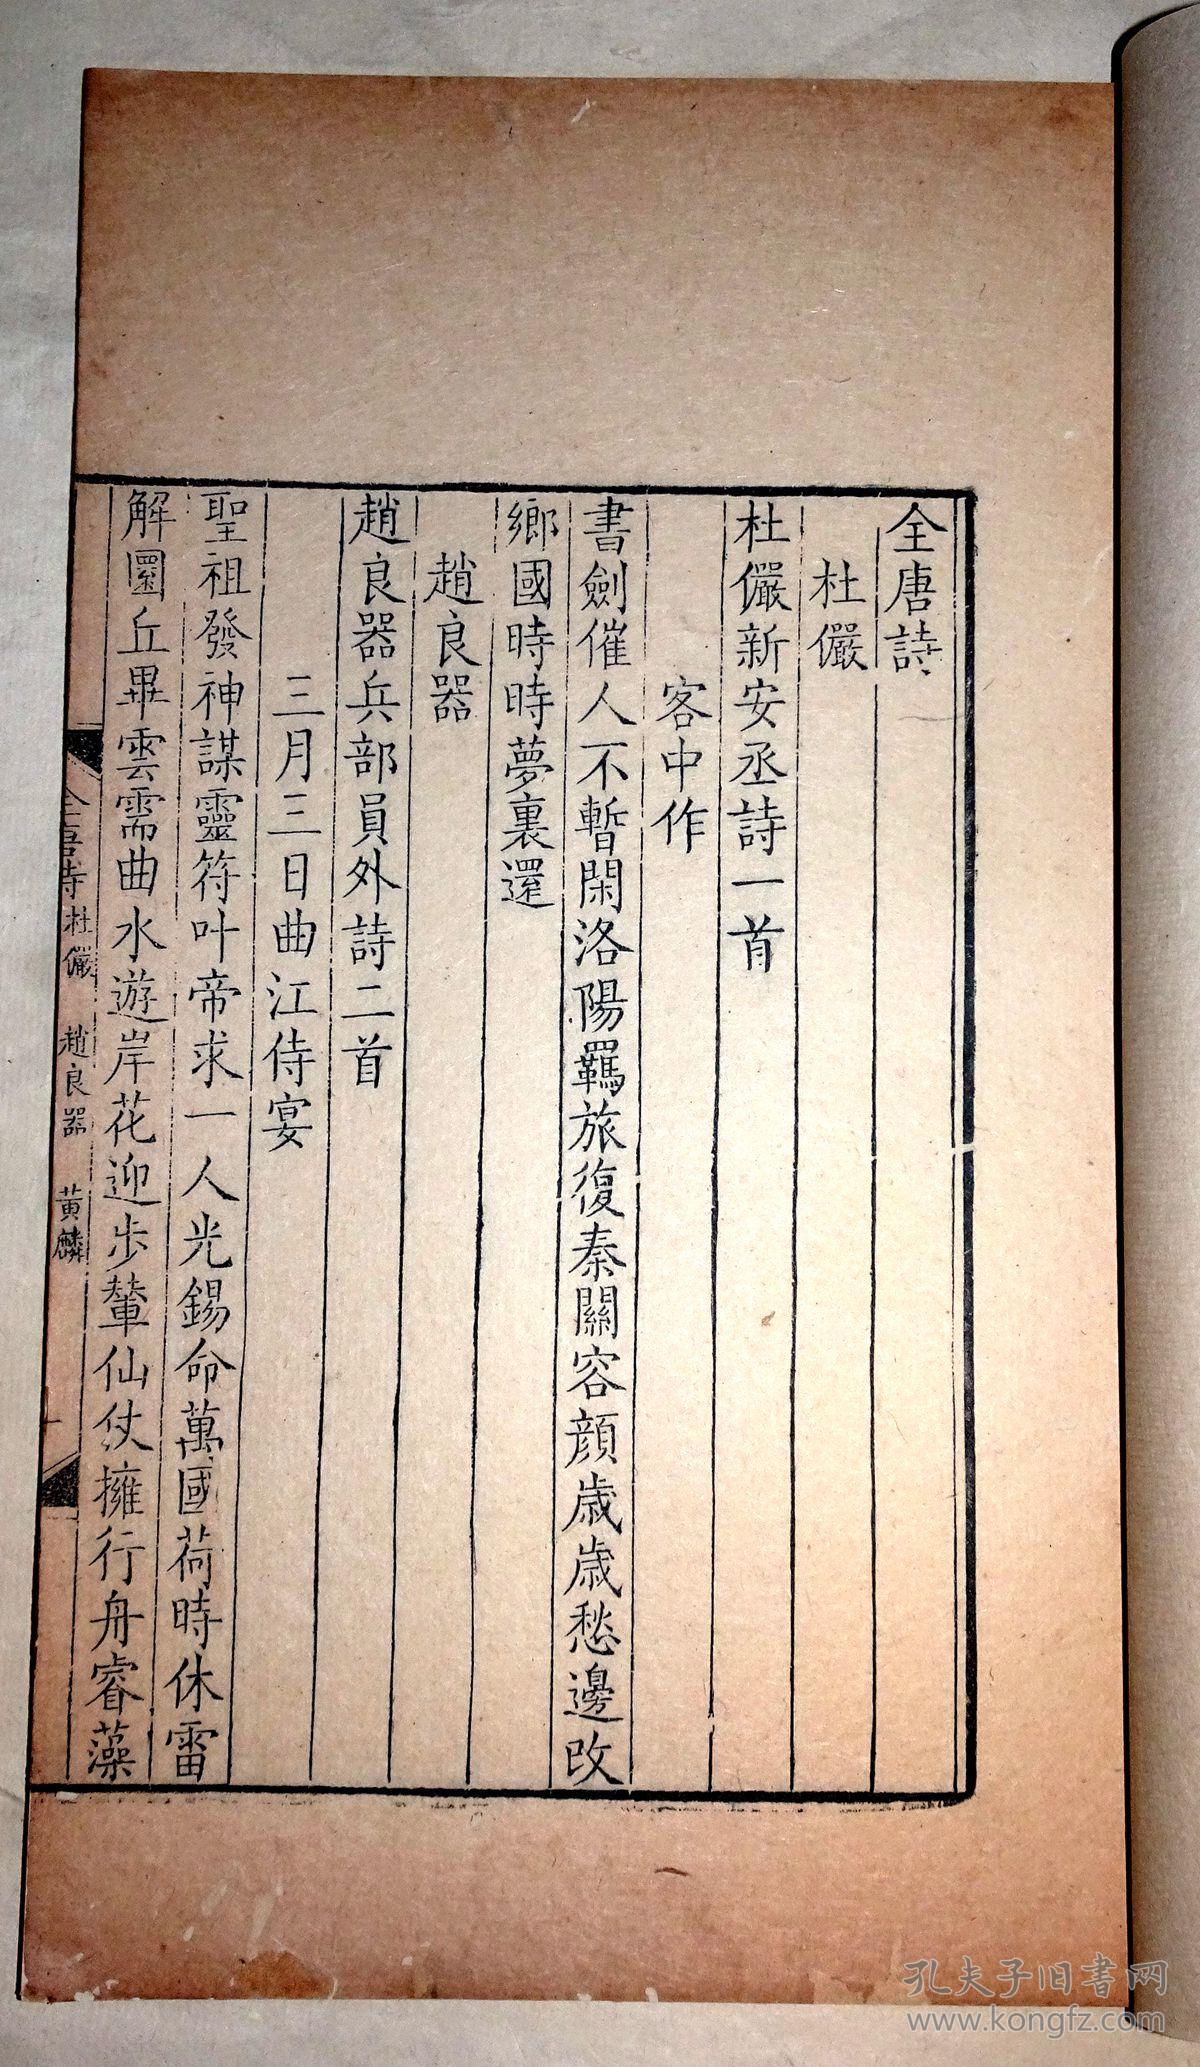 全唐詩
杜儼
杜儼新安丞詩一首
客中作
書劍催人不暫閑洛陽羈旅復秦關容顏歲歲愁邊改
鄉國時時夢裏還
趙良器
趙良器兵部員外詩二首
三月三日曲江侍宴
聖祖發神謀靈符叶帝求一人光錫命萬國荷時休雷
解圜丘畢雲需曲水遊岸花迎步輦仙仗擁行舟睿藻
全唐詩 杜儼 趙良器 黃麟
孔夫子旧书网
www.kongfz.com